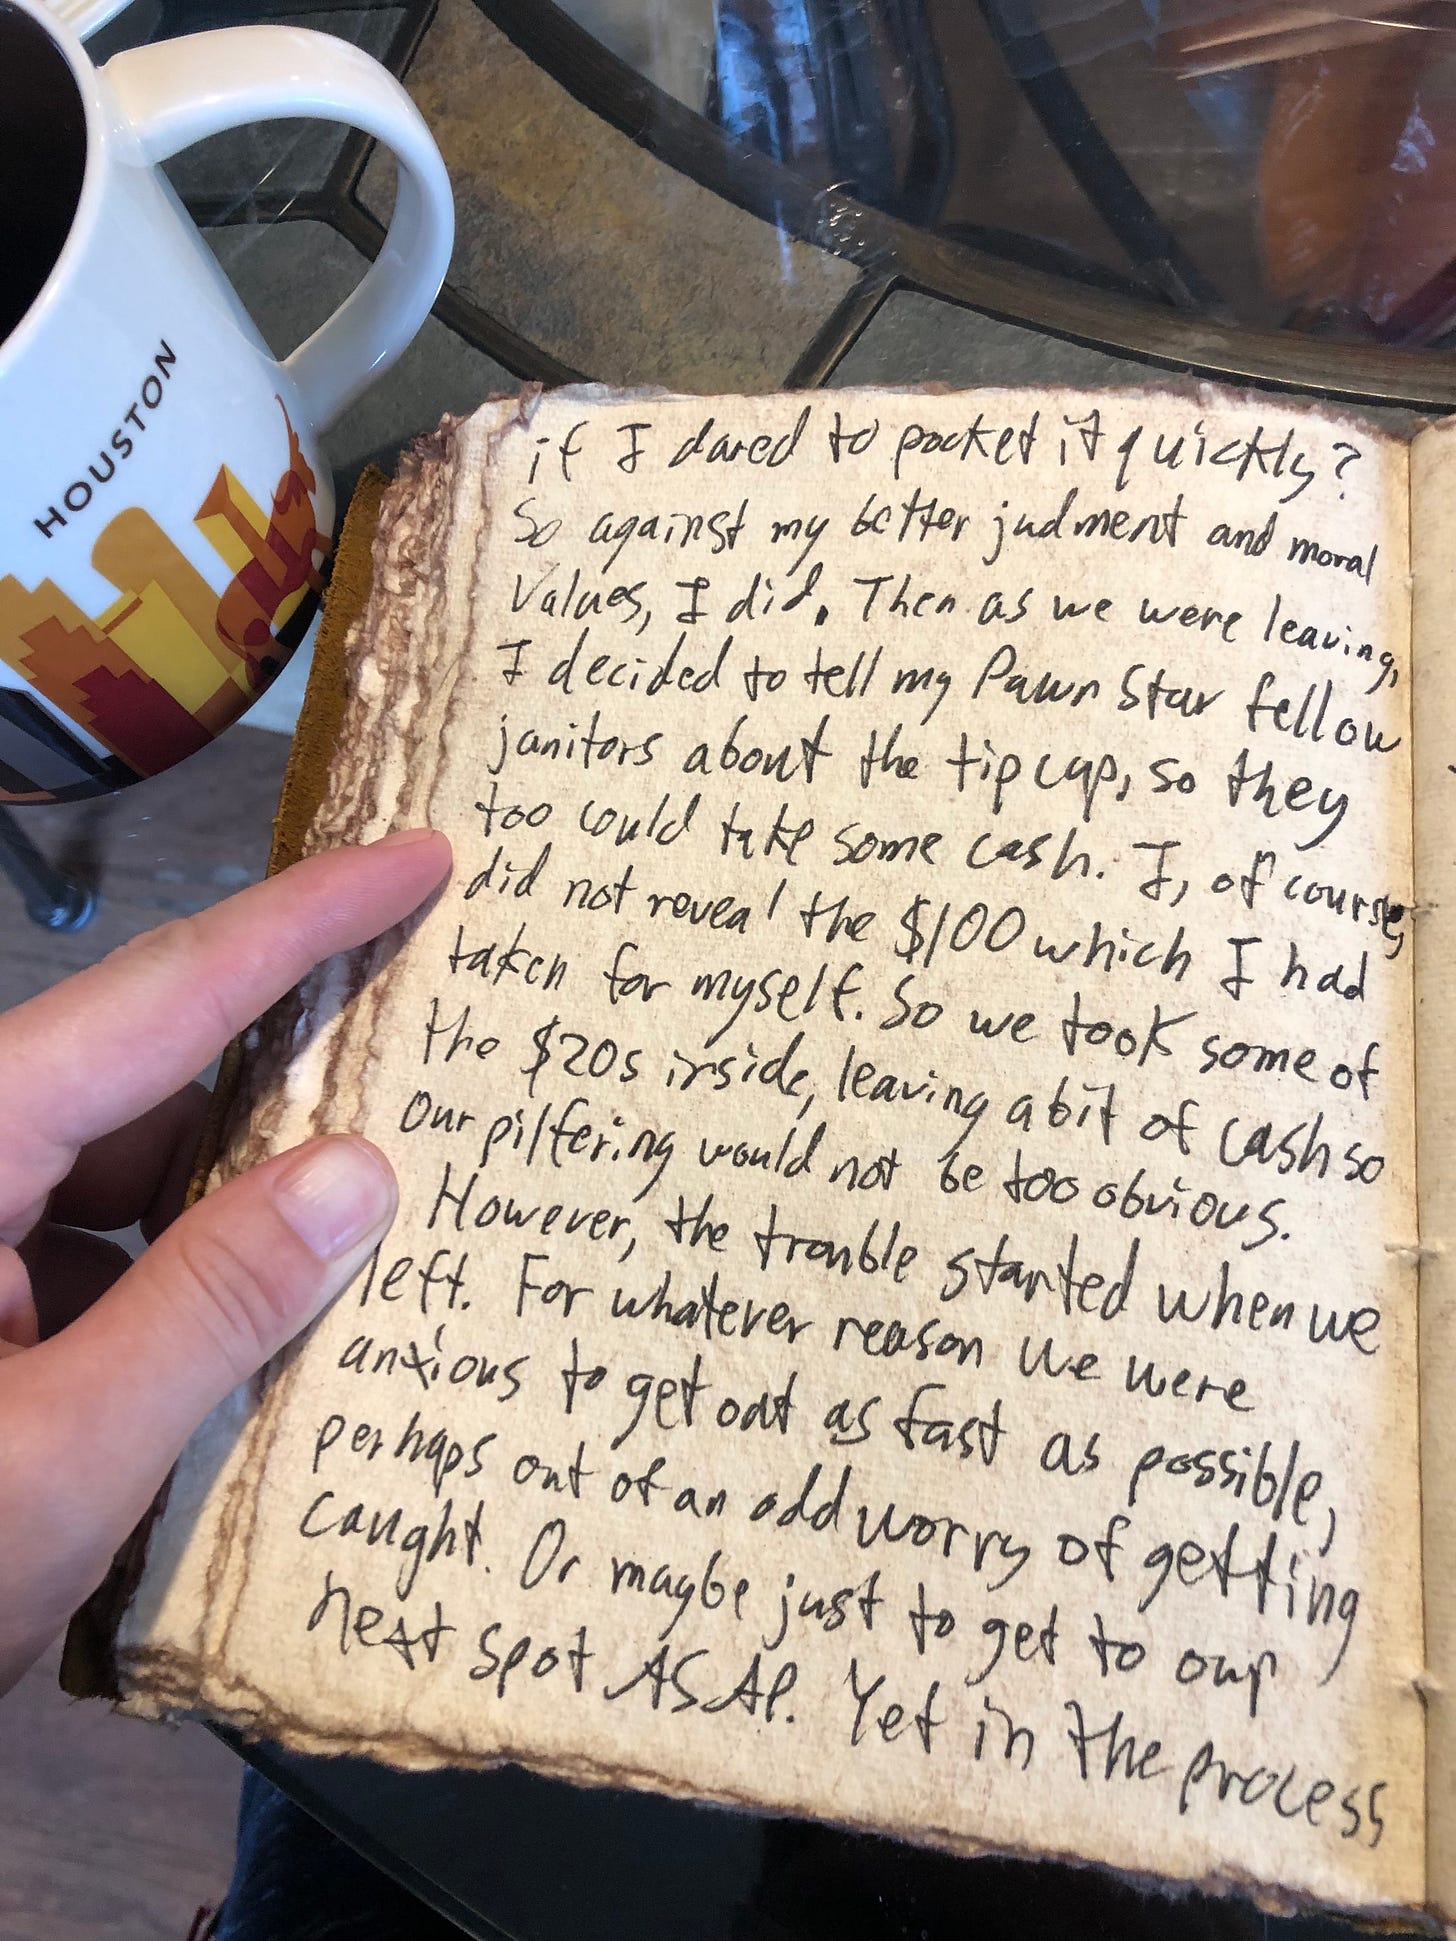 HOUSTON
if I dared to pocket it quickly?
So against my better judment and moral
Values, I did. Then as we were leaving,
I decided to tell my Pawn Star fellow
janitors about the tip cup, so they
too could take some cash. I, of course,
did not reveal the $100 which I had
taken for myself. So we took some of
the $20s inside, leaving a bit of cash so
our pilfering would not be too obvious.
However, the trouble started when we
left. For whatever reason we were
anxious to get out as fast as possible,
perhaps out of an odd worry of getting
caught. Or maybe just to get to our
next spot ASAP. Yet in the process